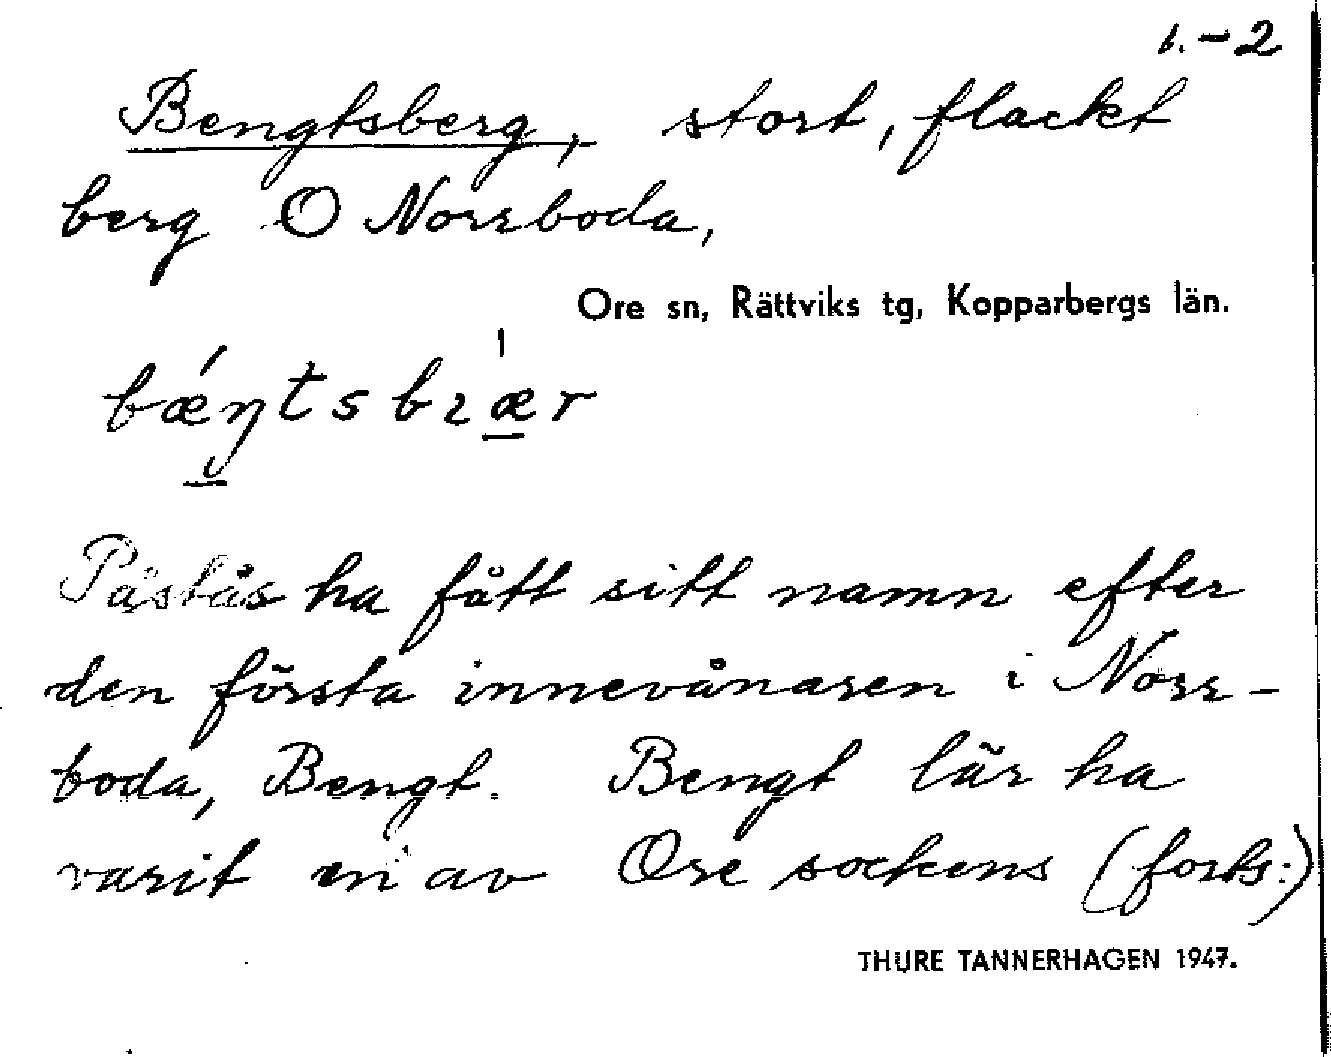 1.-2
Bengtsberg, stort, flackt
berg O Norrboda,
Ore sn, Rättviks tg, Kopparbergs län.
bǽŋtsbɪær
Påstås ha fått sitt namn efter
den första innevånaren i Norr-
boda, Bengt. Bengt lär ha
varit en av Ore sockens (forts:)
THURE TANNERHAGEN 1947.